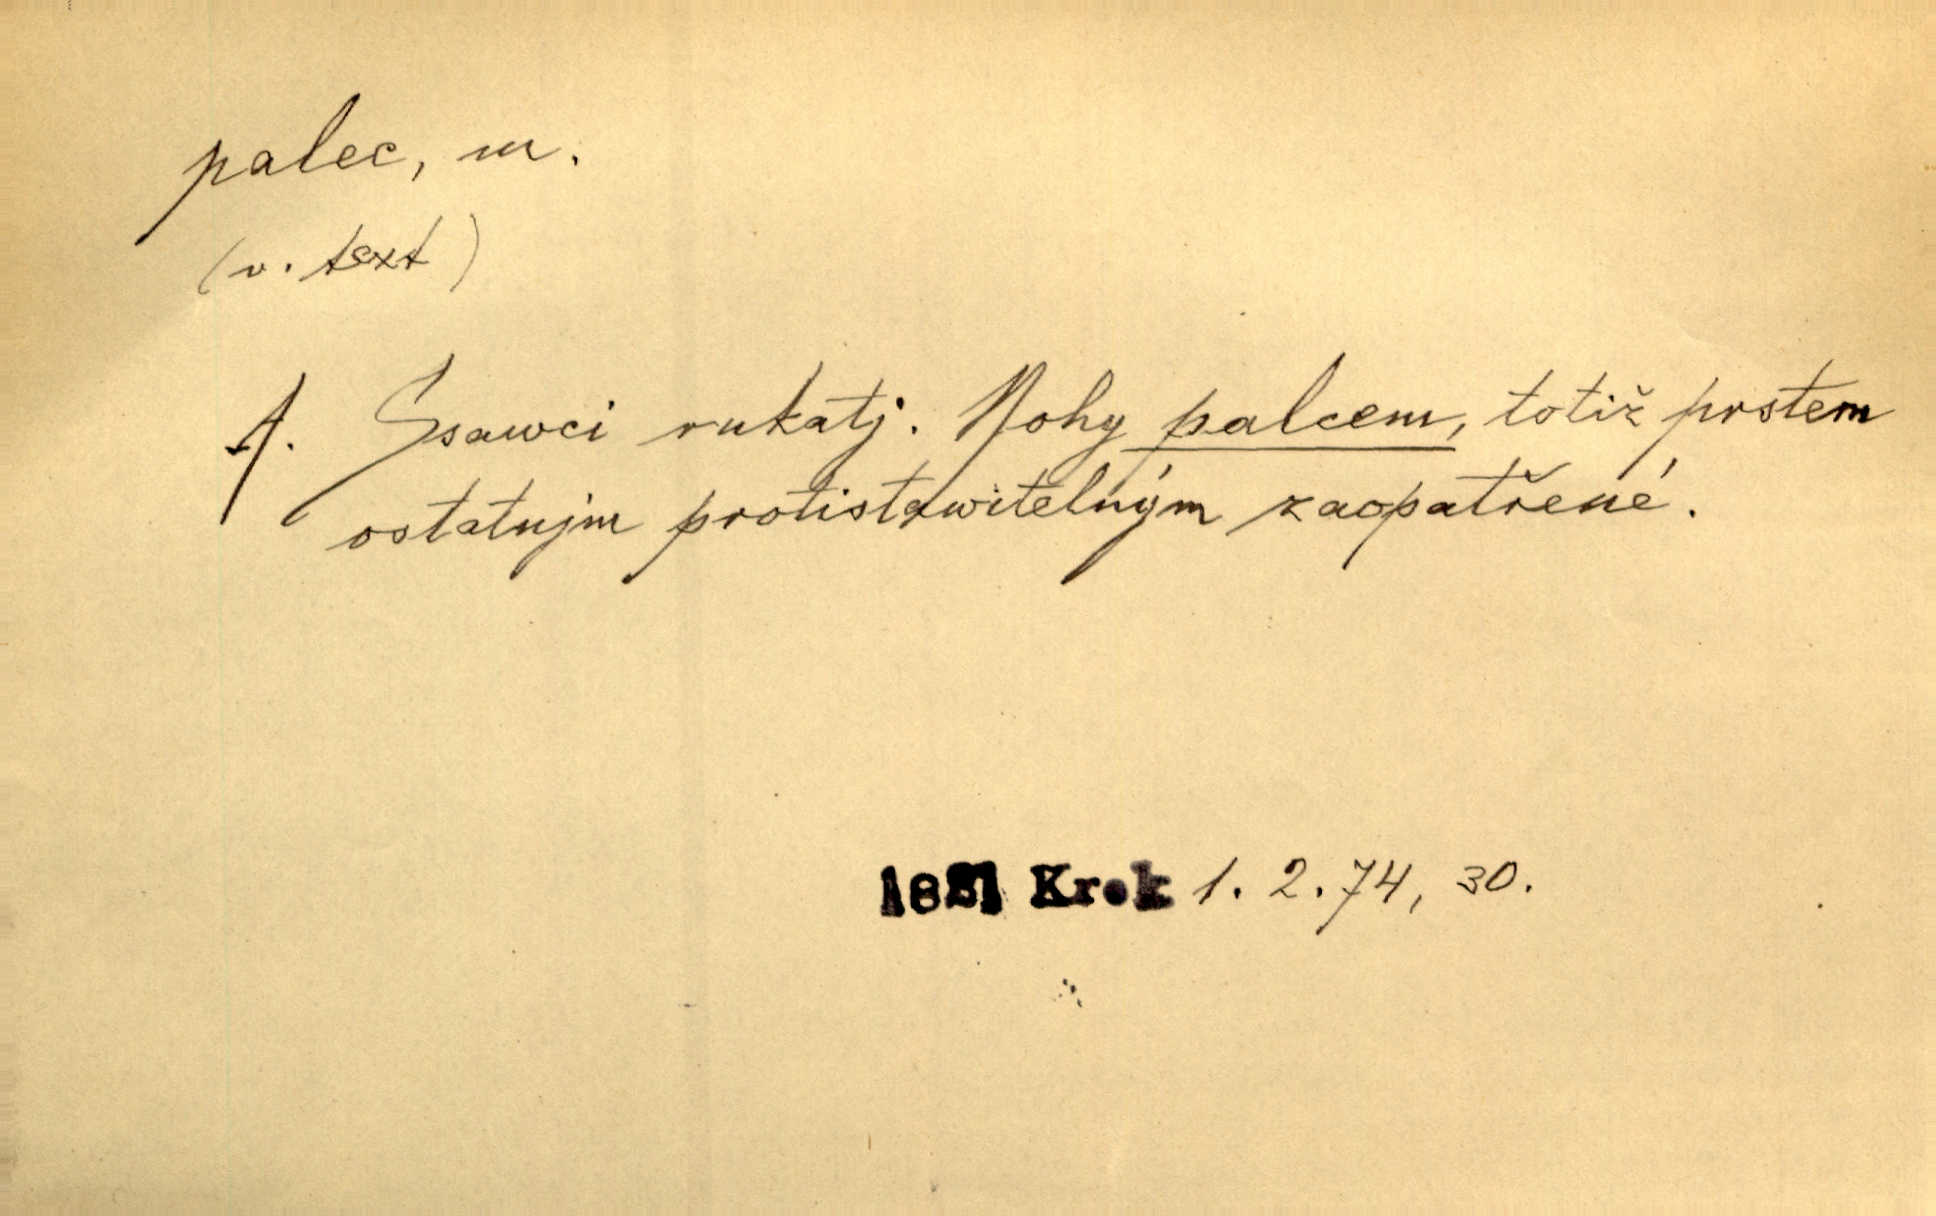 palec, m.
(v. text)
A. Ssawci rukatj. Nohy palcem, totiž prstem
ostatnjm protistawitelným zaopatřené.
1821 Krok 1. 2. 74, 30.